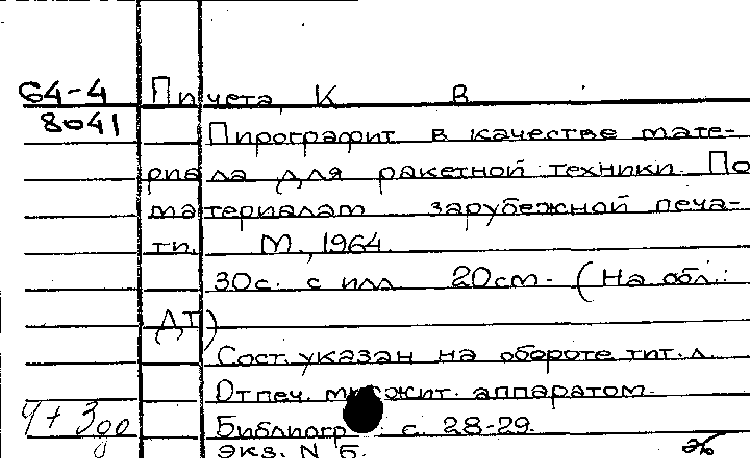 64-4 Пичета, К В
8041 Пирографит в качестве мате-
риала для ракетной техники. По
материалам зарубежной печа-
ти. М., 1964.
30с. с илл. 20см. (На обл.:
ДТ)
Сост. указан на обороте тит. л.
Отпеч. множит. аппаратом.
Библиогр с. 28-29.
экз. N Б.